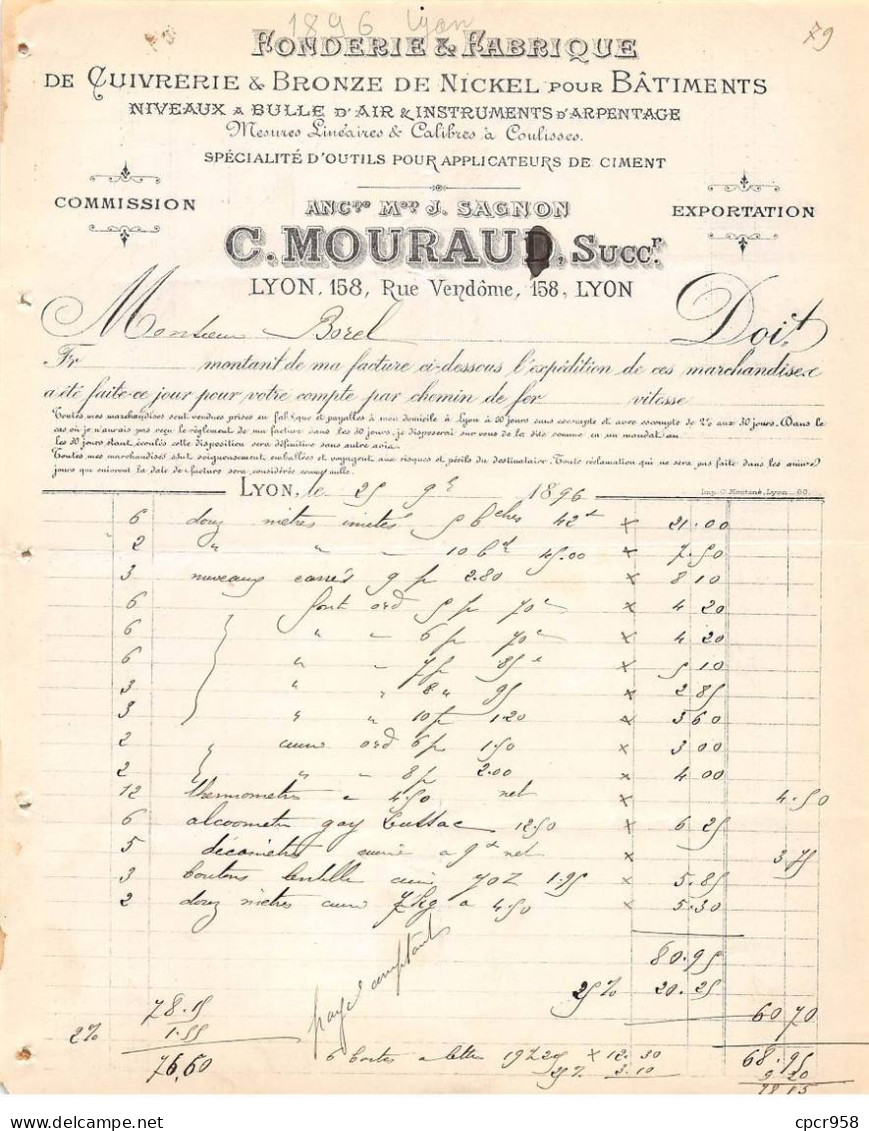 1896 Lyon
79
FONDERIE & FABRIQUE
DE CUIVRERIE & BRONZE DE NICKEL POUR BÂTIMENTS
NIVEAUX A BULLE D'AIR & INSTRUMENTS D'ARPENTAGE
Mesures Linéaires & Calibres à Coulisses.
SPÉCIALITÉ D'OUTILS POUR APPLICATEURS DE CIMENT
COMMISSION
EXPORTATION
ANC.ne M.on J. SAGNON
C. MOURAUD, SUCC.r
LYON, 158, Rue Vendôme, 158, LYON
Monsieur Borel Doit
Fr montant de ma facture ci-dessous l'expédition de ces marchandises
a été faite ce jour pour votre compte par chemin de fer vitesse
Toutes mes marchandises sont vendues prises en fabrique et payables à mon domicile à Lyon à 90 jours sans escompte et avec escompte de 2% aux 30 jours. Dans le
cas où je n'aurais pas reçu le règlement de ma facture dans les 30 jours, je disposerai sur vous de la dite somme en un mandat au
les 30 jours étant écoulés cette disposition sera définitive sans autre avis.
Toutes mes marchandises sont soigneusement emballées et voyagent aux risques et périls du destinataire. Toute réclamation qui ne sera pas faite dans les
jours qui suivront la date de facture sera considérée comme nulle.
LYON, le 25 9bre 1896
6 douz mètres 5 bches 42 x 21.00
2 " " 10 b 45.00 x 7.50
3 niveaux carrés 9 p 2.80 x 8 10
6 font ord 5 p 70 x 4 20
6 " 6 p 70 x 4 20
6 " 7 p 85 x 5 10
3 " " 8 " 95 x 2.85
3 " " 10 p 1.20 x 3 60
2 " cuiv ord 6 p 1.50 x 3 00
2 " " 8 p 2.00 x 4 00
12 thermomètres a 4.50 net x 4.50
6 alcoomètres gay Lussac 12.50 x 6 25
5 décamètres a net x 3.75
3 boutons lentille cuiv 70 1.95 x 5.85
2 douz mètres cuiv 7kg a 4.50 x 5.30
80.95
25% 20.25
60 70
payé comptant
78.15
2% 1.55
76,60
6 boites a lettre x 12.30
25% 3.10
68.95
9 20
78 15